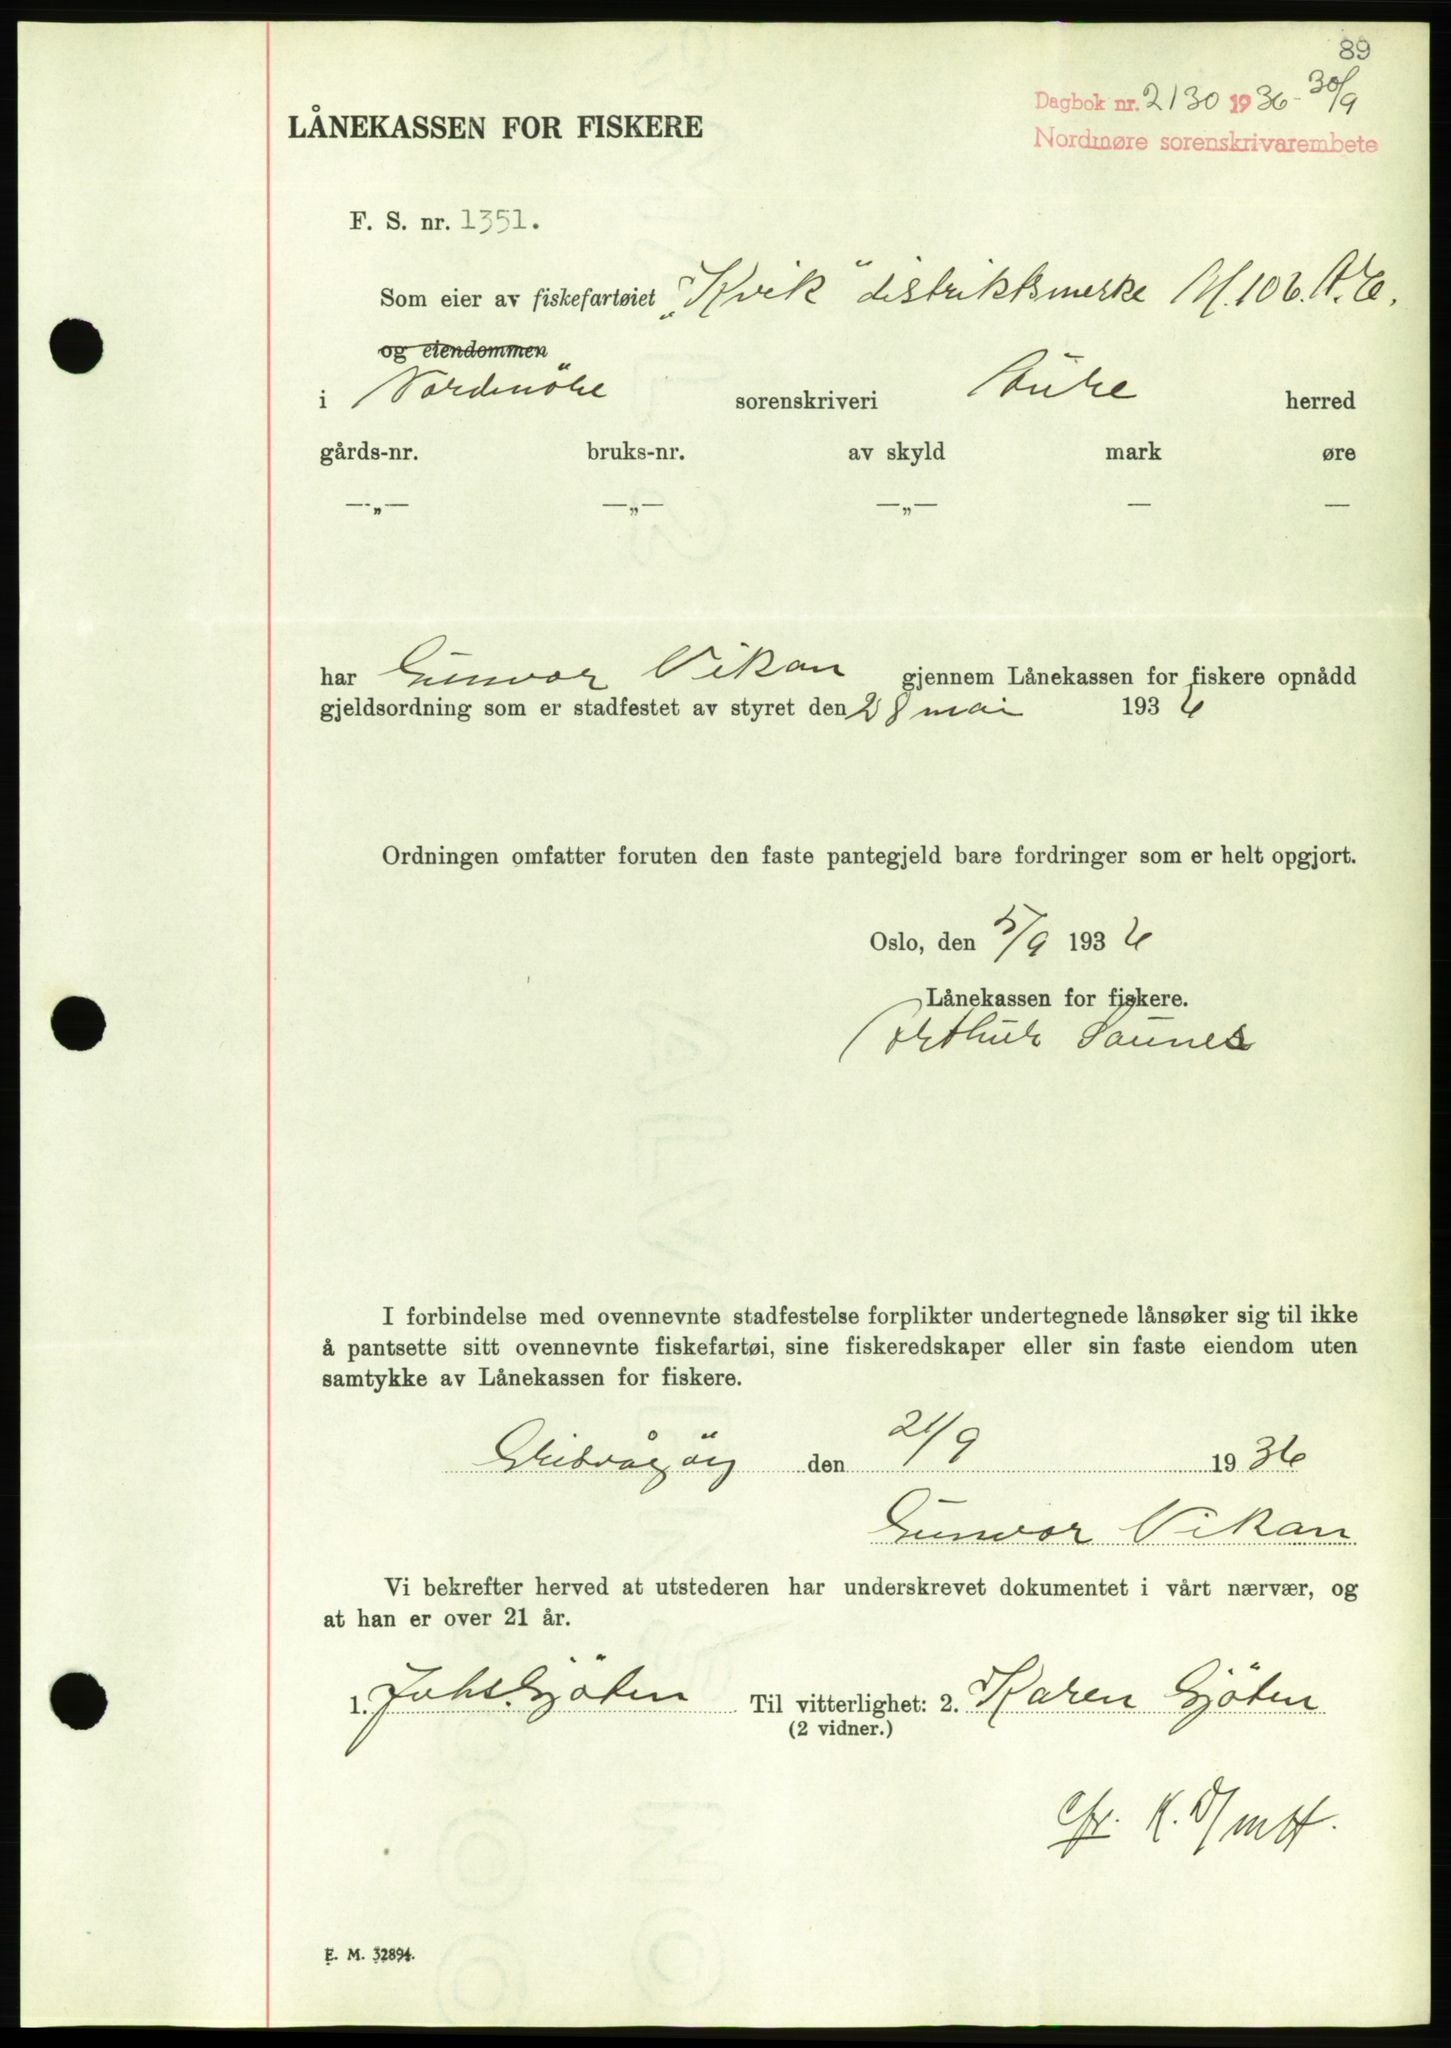 89
Dagbok nr. 2130 1936 - 30/9
Nordmøre sorenskrivarembete
LÅNEKASSEN FOR FISKERE
F. S. nr. 1351.
Som eier av fiskefartøiet „Kvik" distriktsmerke M. 106. A. E.
og eiendommen
i Nordmöre sorenskriveri Aure herred
gårds-nr. bruks-nr. av skyld mark øre
—„— —„— —„— — —
har Gunvor Vikan gjennem Lånekassen for fiskere opnådd
gjeldsordning som er stadfestet av styret den 28 mai 1936
Ordningen omfatter foruten den faste pantegjeld bare fordringer som er helt opgjort.
Oslo, den 5/9 1936
Lånekassen for fiskere.
Arthur Saunes
I forbindelse med ovennevnte stadfestelse forplikter undertegnede lånsøker sig til ikke
å pantsette sitt ovennevnte fiskefartøi, sine fiskeredskaper eller sin faste eiendom uten
samtykke av Lånekassen for fiskere.
Grisvågöy den 21/9 1936
Gunvor Vikan
Vi bekrefter herved at utstederen har underskrevet dokumentet i vårt nærvær, og
at han er over 21 år.
1. Johs. Gjöten Til vitterlighet: 2. Karen Gjöten
(2 vidner.)
E. M. 32894.